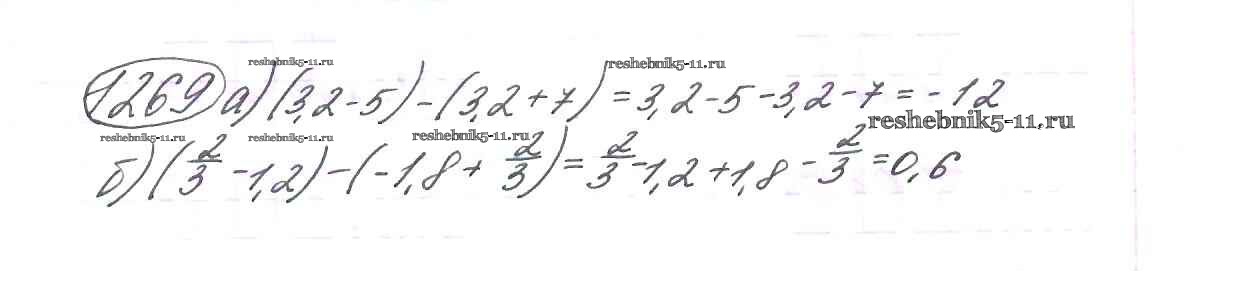 reshebnik5-11.ru reshebnik5-11.ru
1269 а) (3,2 - 5) - (3,2 + 7) = 3,2 - 5 - 3,2 - 7 = -12
reshebnik5-11.ru reshebnik5-11.ru reshebnik5-11.ru reshebnik5-11.ru
б) (2/3 - 1,2) - (-1,8 + 2/3) = 2/3 - 1,2 + 1,8 - 2/3 = 0,6